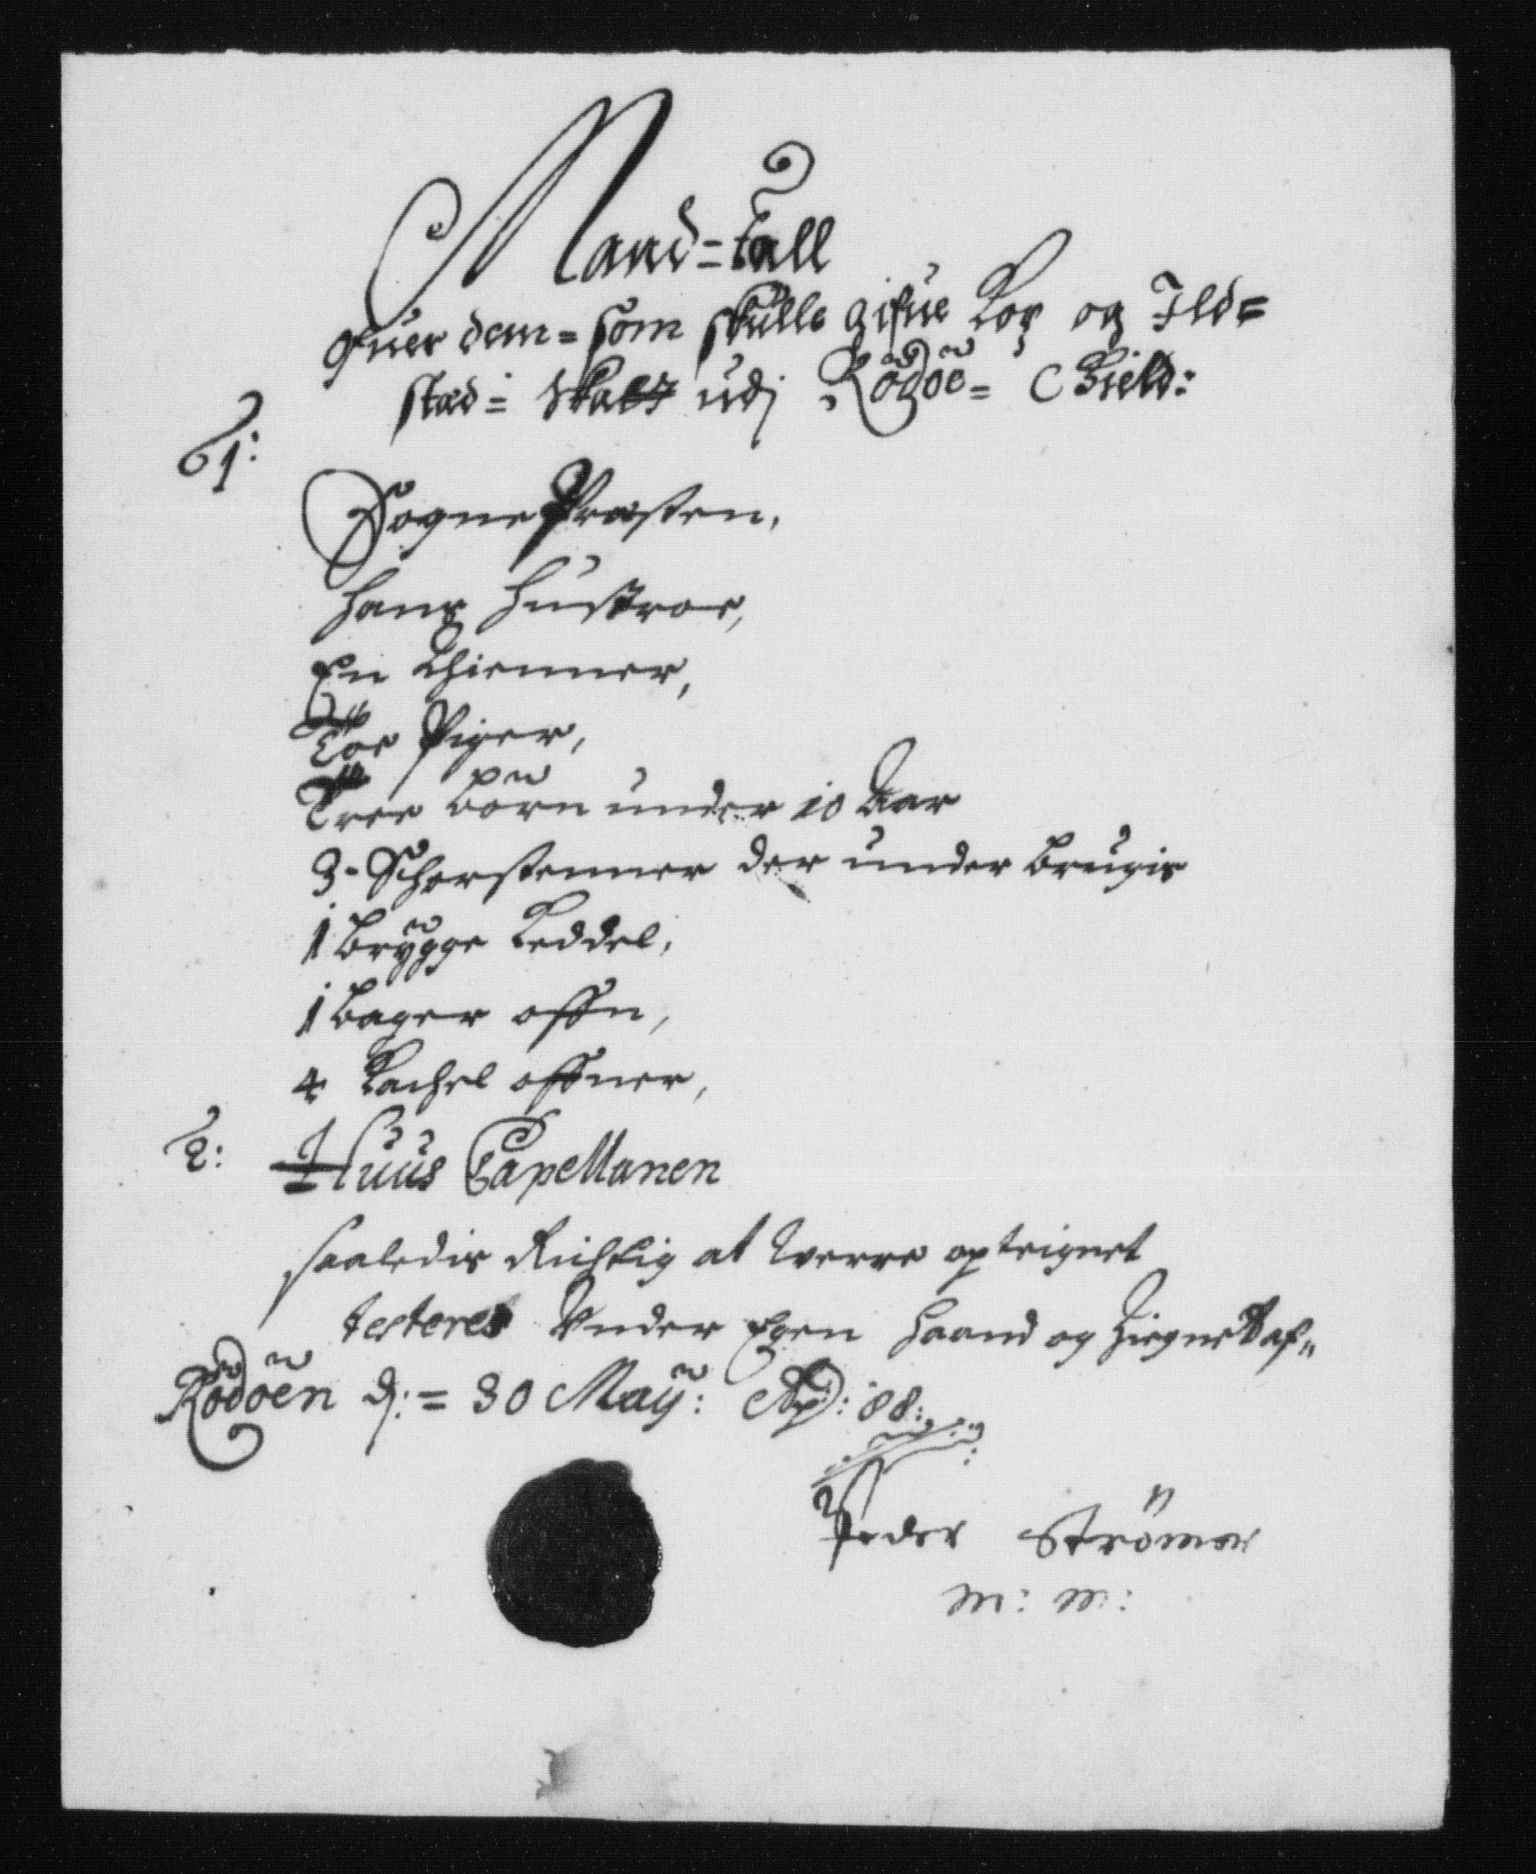 Mand=Tall
Ofuer dem = som skulle gifue Kop og Ild=
sted = Skatt udj Rödöe = Gield:
1:
Sogne Præsten,
hans Hustroe,
En Thienner,
Toe Piger,
Tree börn under 10 Aar
3 - Schorstenner der under brugis
1 brÿgge Keddel,
1 bager offn,
4 Kachel offner,
2: Huus Capellanen
saaledis Richtig at werre opteignet
testeres Under Egen haand og Zignet af
Rödöen d: = 30 Maÿ: Ao: 88:
Peder Strömer
m: m: